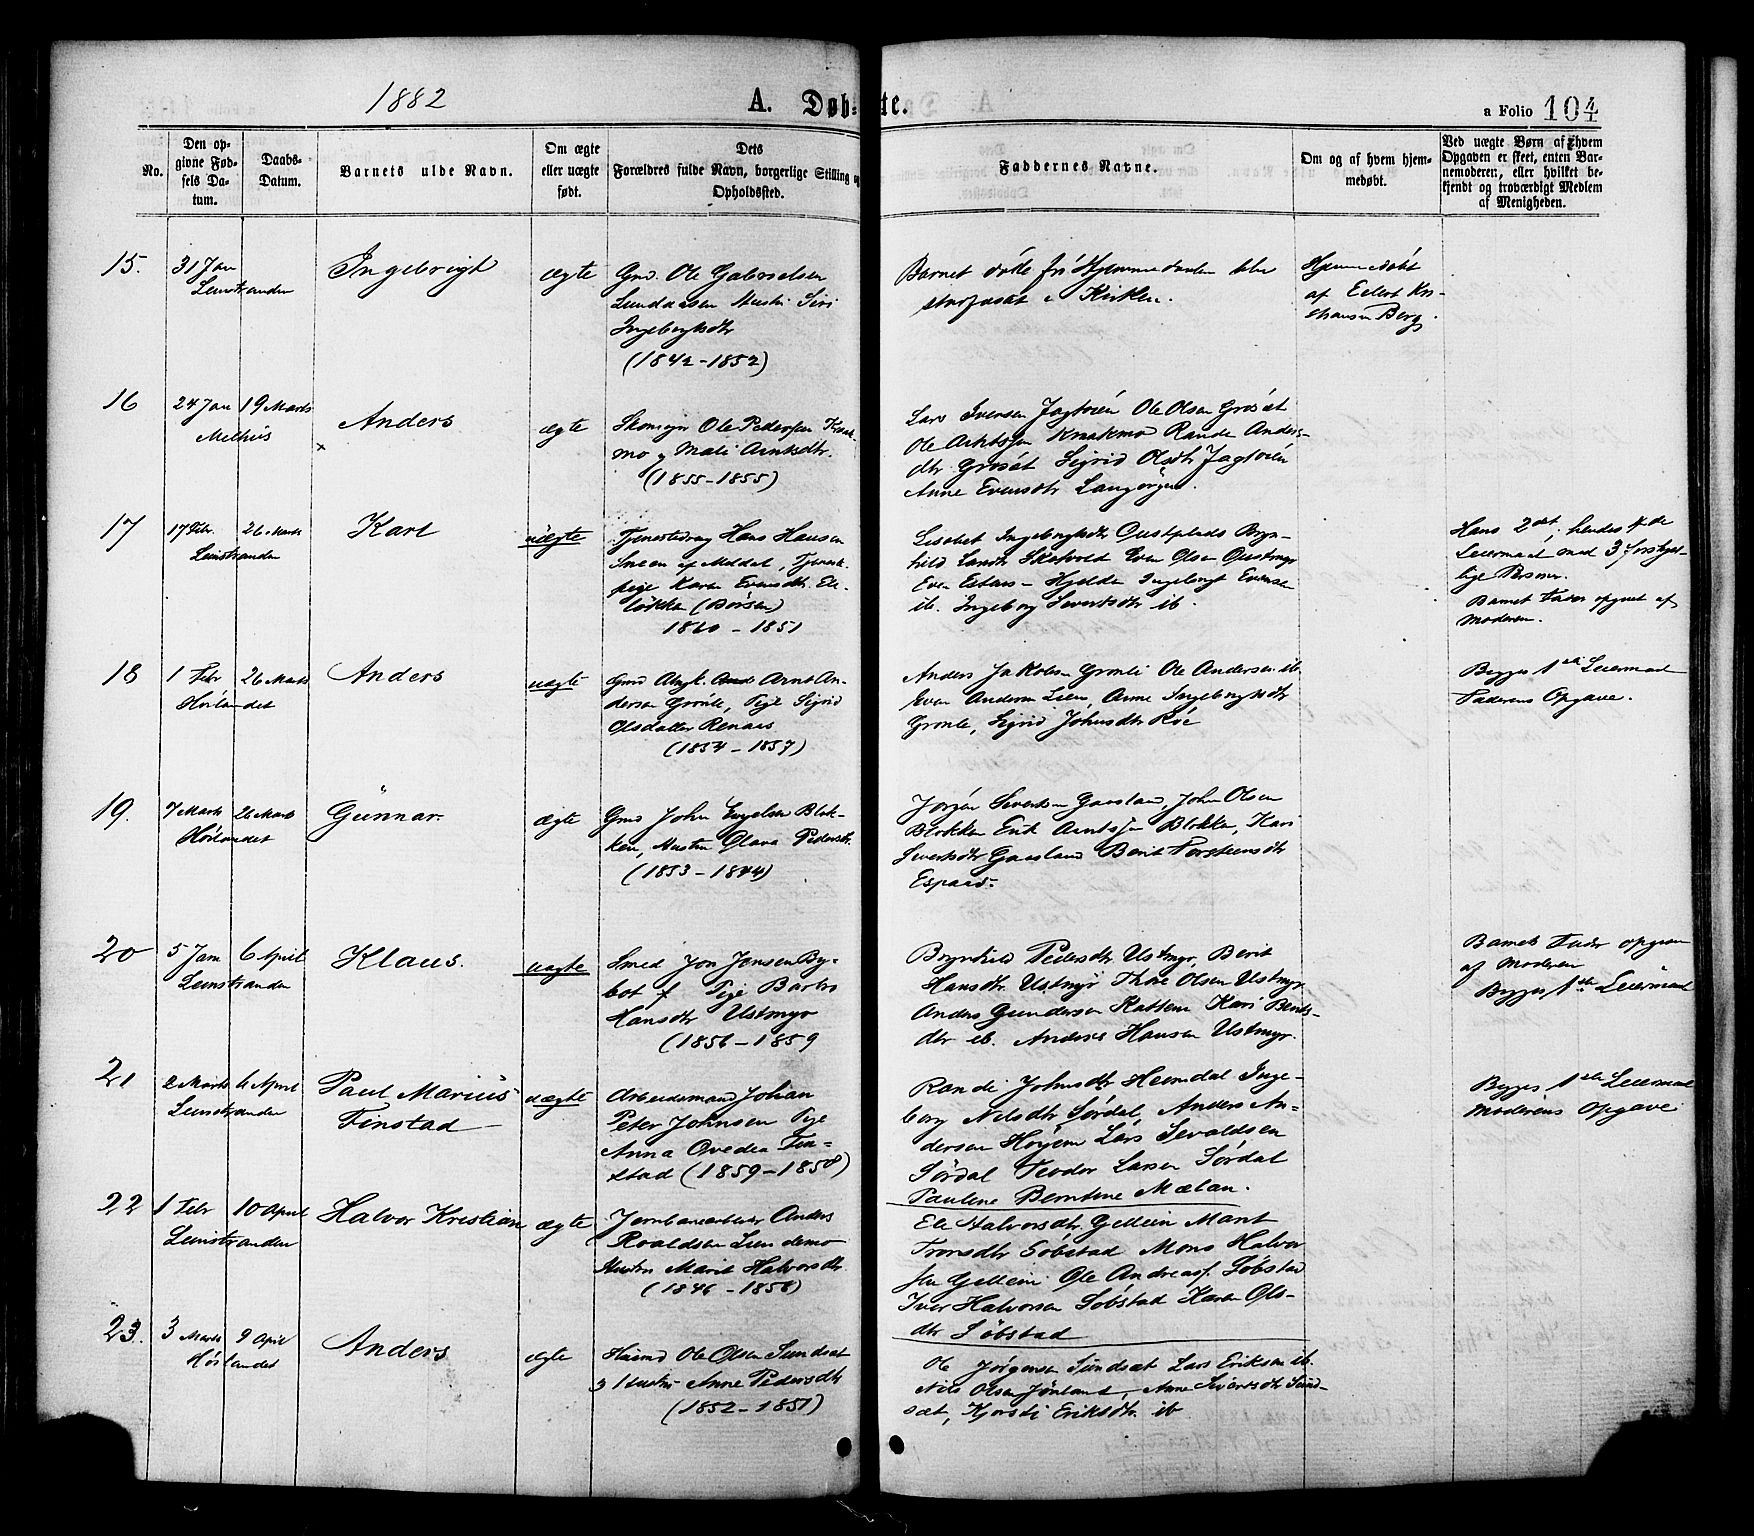 1882
A. Døb-
te.
a Folio 104
No.
Den op-
givne Fød-
sels Da-
tum.
Daabs-
Datum.
Barnets ulde Navn.
Om ægte
eller uægte
født.
Dets
Forældres fulde Navn, borgerlige Stilling og
Opholdssted.
Faddernes Navne.
Om og af hvem hjem-
medøbt.
Ved uægte Børn af hvem
Opgaven er skeet, enten Bar-
nemoderen, eller hvilket be-
kjendt og troværdigt Medlem
af Menigheden.
15.
31 Jan
Leinstranden
Ingebrigt
ægte
Gmd. Ole Gabrielsen
Hustru Siri
Ingebrigtsdtr
(1842-1852)
Barnet døde før
i Kirken.
Hjemmedøbt
af Eilert Kri-
stiansen Berg.
16
24 Jan 19 Marts
Melhus
Anders
ægte
Ole Pedersen Knak-
mo og Mali Arntsdtr.
(1855-1855)
Lars Iversen Jagtøien Ole Olsen Grøsæt
Ole Arntsen Knakmo Rande Anders-
dtr. Grøsæt Sigrid Olsdtr Jagtøien
Anne Evensdtr Langørgen.
17
17 Febr. 26 Marts
Leinstranden
Karl
uægte
Tjenestedreng Hans Hansen
Sneen af Meldal, Tjeneste-
pige Karen Evensdtr. Ek-
løkken (Børsen)
1860 - 1851
Lisabet Ingebrigtsdtr Oustplads Bryn-
hild Larsdtr Skjefvold Even Olsen Oustmyr
Even Estens- Hjelden Ingebrigt Evensen
ib. Ingeborg Sivertsdtr ib.
Hans 2det, hendes 4de
Leiermaal med 3 forskjel-
lige Personer.
Barnets Fader opgivet af
Moderen.
18
1 Febr 26 Marts
Hølandet
Anders
uægte
Arnt An-
dersen Grønli, Pige Sigrid
Olsdatter Renaas
(1854 - 1857)
Anders Jakobsen Grønli Ole Andersen ib.
Iver Andersen Lien, Anne Ingebrigtsdtr
Grønli, Sigrid Johnsdtr Røe
Begges 1ste Leiermaal
Faderens Opgave.
19.
7 Marts 26 Marts
Hølandet
Gunnar.
ægte
Gmd John Engelsen Blok-
ken, Hustru Olava Pedersdtr.
(1853 - 1844)
Jørgen Sivertsen Gaasland, John Olsen
Blokken Erik Arntsen Blokken, Kari
Sivertsdtr Gaasland Berit Torsteinsdtr
Espaas.
20
5 Jan 6 April
Leinstranden
Klaus.
uægte
Smed Jon Jensen By-
bot f. Pige Barbro
Hansdtr Ustmyr
(1856 - 1859
Brynhild Pedersdtr Ustmyr, Berit
Hansdtr. Ustmyr Thore Olsen Ustmyr
Anders Gundersen Rattem Kari Berits-
dtr ib. Anders Hansen Ustmyr.
Barnets Fader opgiven
af Moderen
Begges 1ste Leiermaal
21
2 Marts 6 April
Leinstranden
Paul Marius
Finstad
uægte
Arbeidsmand Johan
Peter Johnsen Pige
Anna Ovedia Fin-
stad (1859 - 1858)
Randi Johnsdtr Heimdal Inge-
borg Nilsdtr Sørdal, Anders An-
dersen Høyem Lars Sevaldsen
Sørdal Teodor Larsen Sørdal
Pauline Berntine Mælan.
Begges 1ste Leiermaal
Moderens Opgave
22
1 Febr 10 April
Leinstranden
Halvor Kristian
ægte
Jernbanearbeider Anders
Roaldsen Lundemo
Hustru Marit Halvorsdtr
(1846 - 1856)
Eli Halvorsdtr. Gellein Marit
Tronsdtr Søbstad Mons Halvor
sen Gellein Ole Andreas. Søbstad
Iver Halvorsen Søbstad Karen Ols-
dtr Søbstad
23.
3 Marts 9 April
Hølandet
Anders
ægte
Husmd Ole Olsen Sundsæt
og Hustru Anne Pedersdtr
(1852 - 1851)
Ole Jørgensen Sundsæt Lars Eriksen ib.
Nils Olsen Jønland, Anne Sivertsdtr Sund-
sæt, Kjersti Eriksdtr. ib